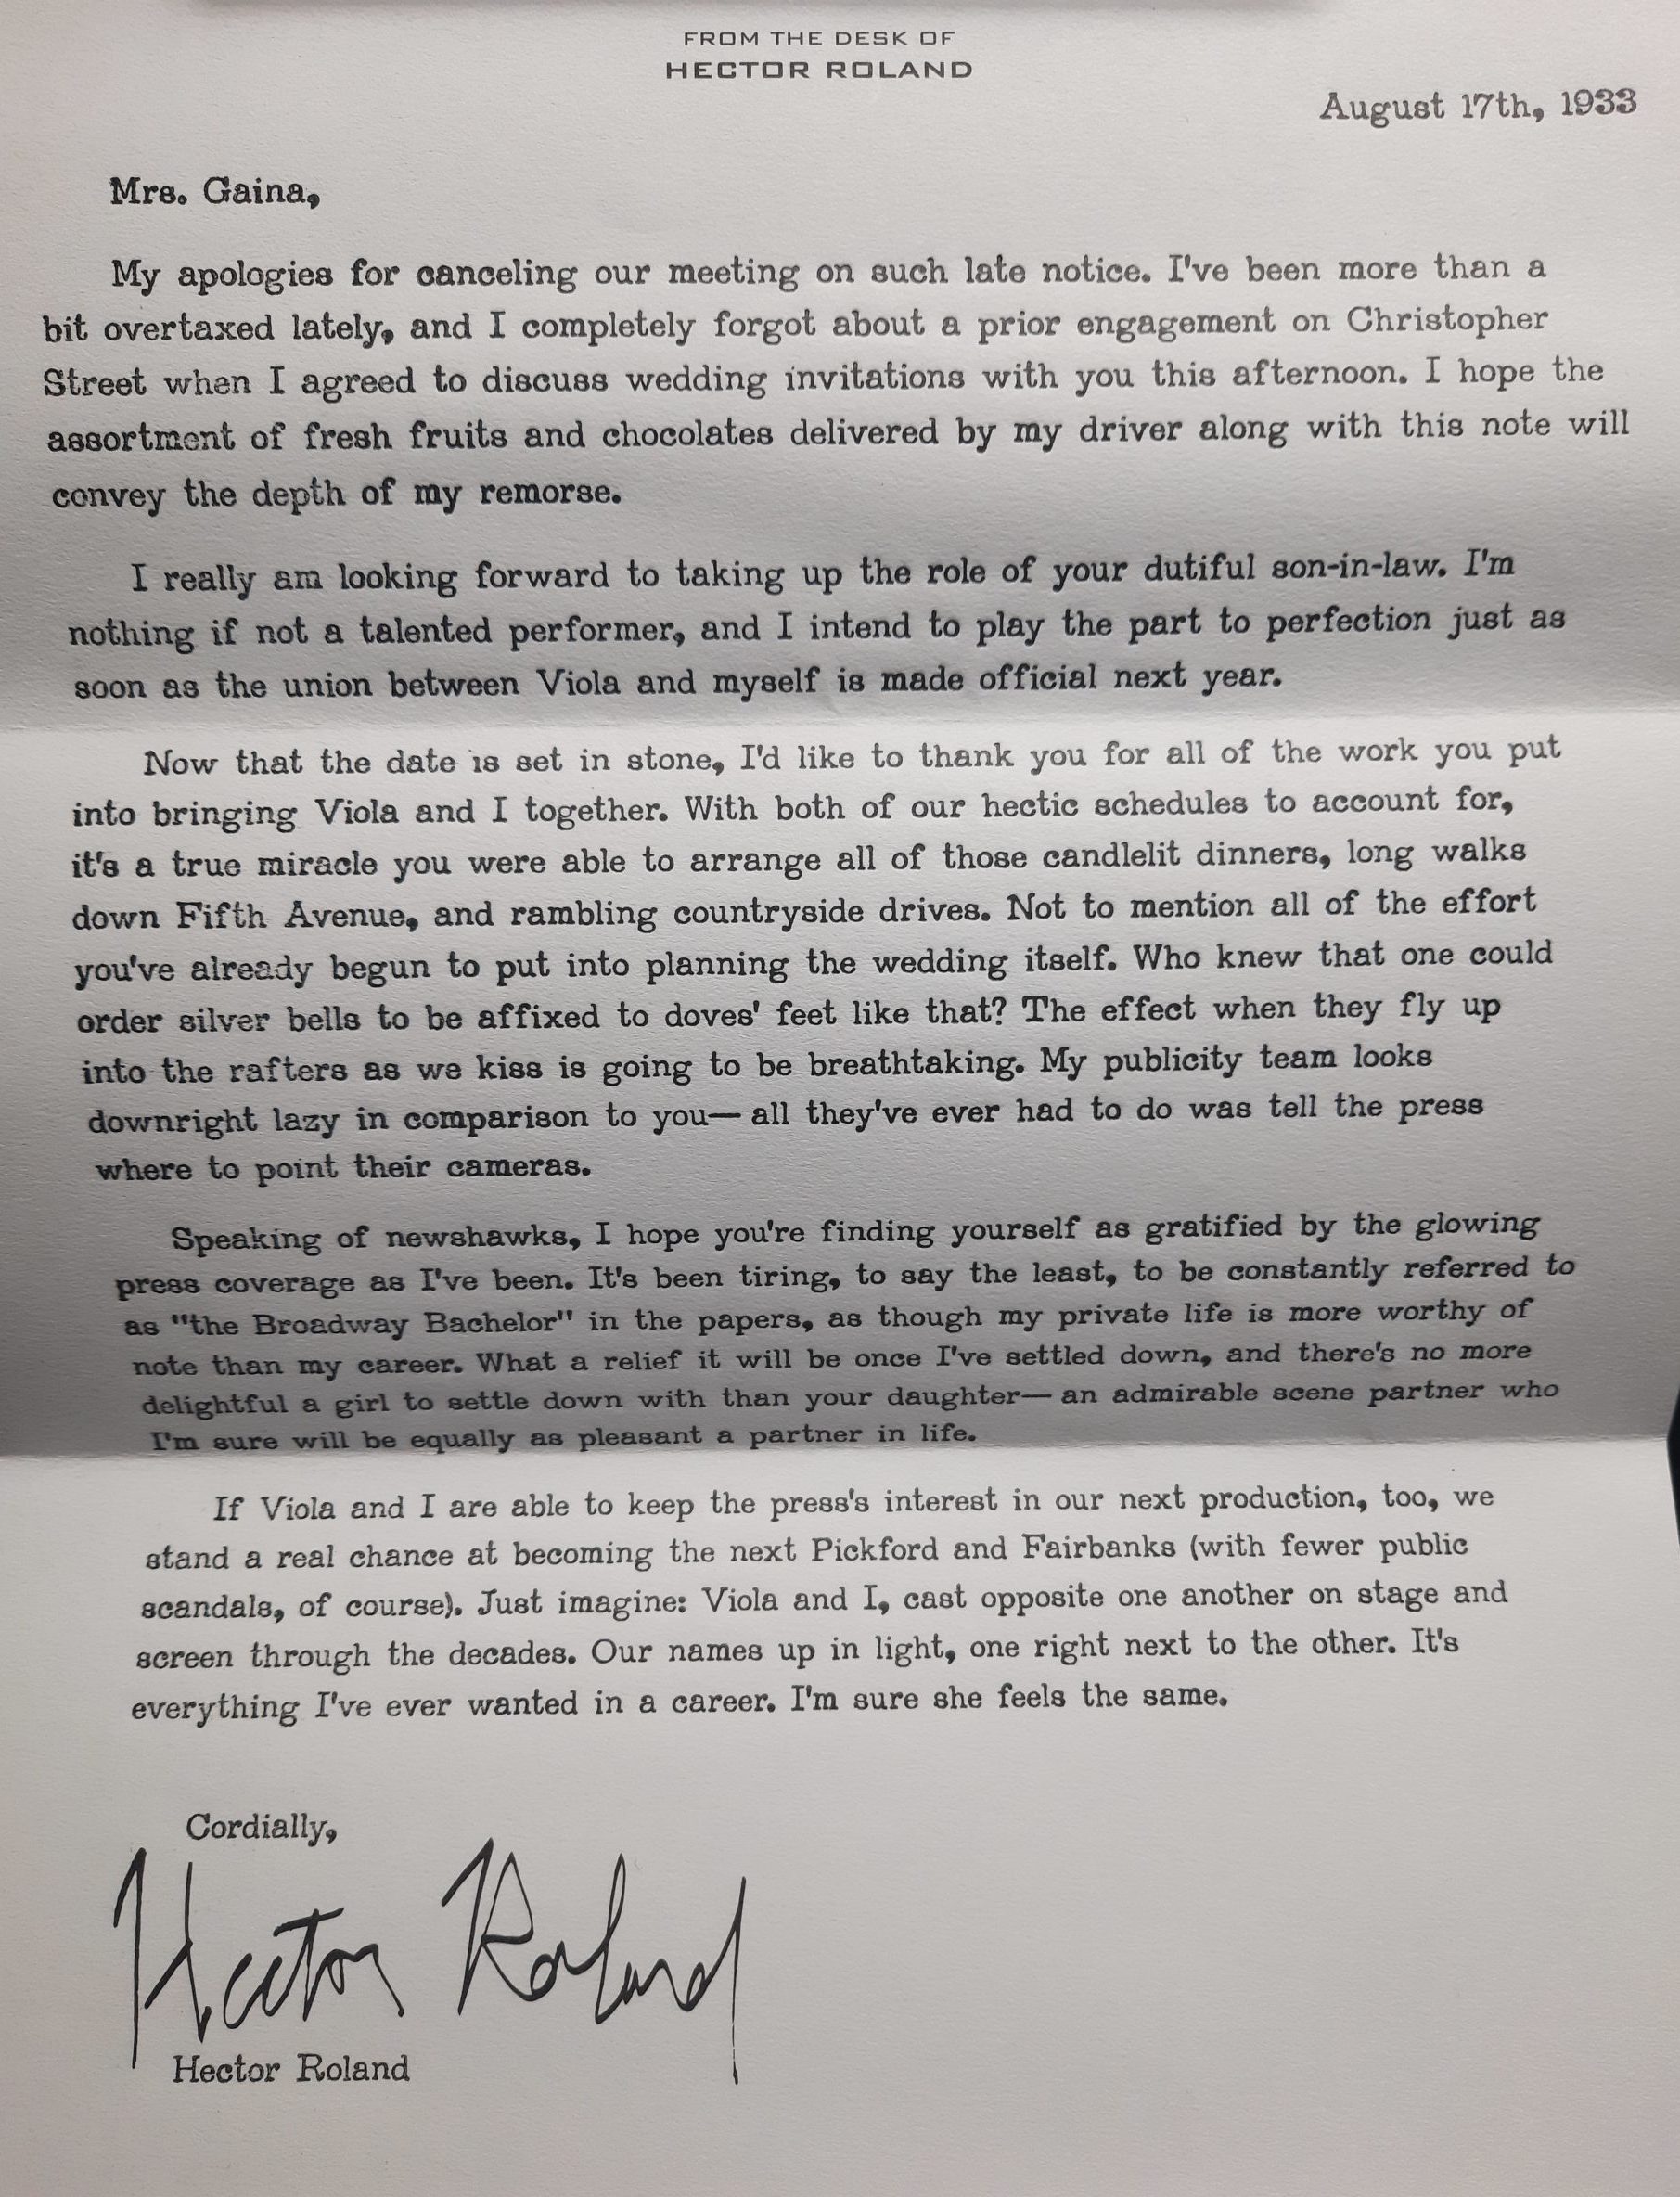 FROM THE DESK OF
HECTOR ROLAND
August 17th, 1933
Mrs. Gaina,
My apologies for canceling our meeting on such late notice. I've been more than a
bit overtaxed lately, and I completely forgot about a prior engagement on Christopher
Street when I agreed to discuss wedding invitations with you this afternoon. I hope the
assortment of fresh fruits and chocolates delivered by my driver along with this note will
convey the depth of my remorse.
I really am looking forward to taking up the role of your dutiful son-in-law. I'm
nothing if not a talented performer, and I intend to play the part to perfection just as
soon as the union between Viola and myself is made official next year.
Now that the date is set in stone, I'd like to thank you for all of the work you put
into bringing Viola and I together. With both of our hectic schedules to account for,
it's a true miracle you were able to arrange all of those candlelit dinners, long walks
down Fifth Avenue, and rambling countryside drives. Not to mention all of the effort
you've already begun to put into planning the wedding itself. Who knew that one could
order silver bells to be affixed to doves' feet like that? The effect when they fly up
into the rafters as we kiss is going to be breathtaking. My publicity team looks
downright lazy in comparison to you— all they've ever had to do was tell the press
where to point their cameras.
Speaking of newshawks, I hope you're finding yourself as gratified by the glowing
press coverage as I've been. It's been tiring, to say the least, to be constantly referred to
as "the Broadway Bachelor" in the papers, as though my private life is more worthy of
note than my career. What a relief it will be once I've settled down, and there's no more
delightful a girl to settle down with than your daughter— an admirable scene partner who
I'm sure will be equally as pleasant a partner in life.
If Viola and I are able to keep the press's interest in our next production, too, we
stand a real chance at becoming the next Pickford and Fairbanks (with fewer public
scandals, of course). Just imagine: Viola and I, cast opposite one another on stage and
screen through the decades. Our names up in light, one right next to the other. It's
everything I've ever wanted in a career. I'm sure she feels the same.
Cordially,
Hector Roland
Hector Roland